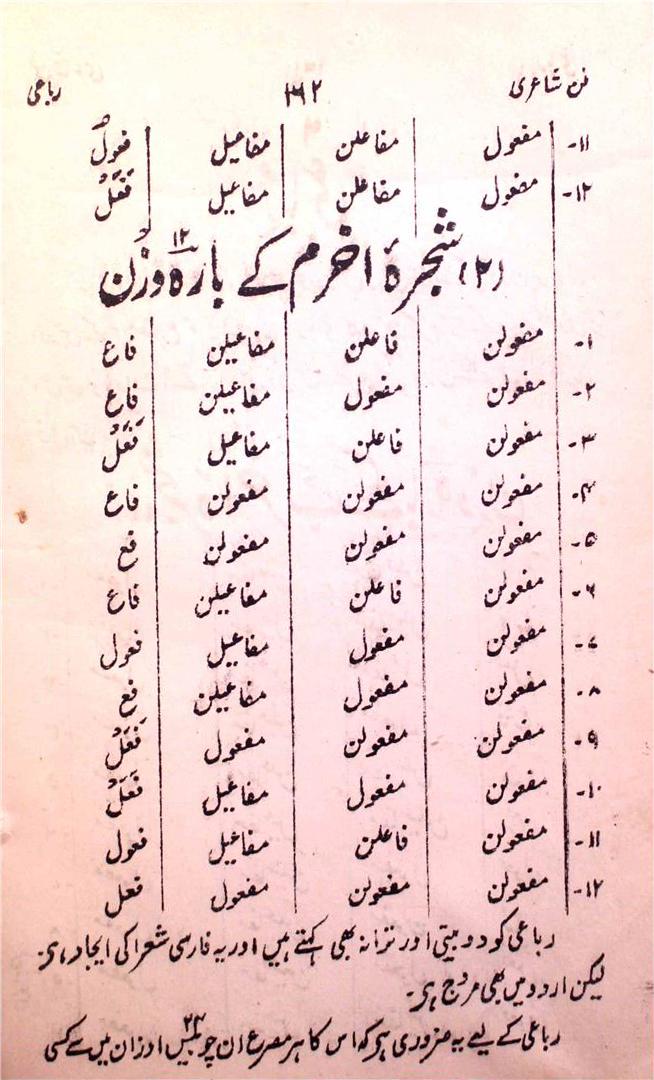 فن شاعری ۲۶۲ رباعی
۱۱- مفعول مفاعلن مفاعیل فعول
۱۲- مفعول مفاعلن مفاعیل فَعَلْ
(۲) شجرۂ اخرم کے بارہ ۱۲ وزن
۱- مفعولن فاعلن مفاعیلن فاع
۲- مفعولن مفعول مفاعیلن فاع
۳- مفعولن فاعلن مفاعیل فَعَلْ
۴- مفعولن مفعولن مفعولن فاع
۵- مفعولن مفعولن مفعولن فع
۶- مفعولن فاعلن مفاعیلن فاع
۷- مفعولن مفعول مفاعیل فعول
۸- مفعولن مفعول مفاعیلن فع
۹- مفعولن مفعولن مفعول فَعَلْ
۱۰- مفعولن مفعول مفاعیل فَعَلْ
۱۱- مفعولن فاعلن مفاعیل فعول
۱۲- مفعولن مفعولن مفعول فعل
رباعی کو دو بیتی اور ترانہ بھی کہتے ہیں اور یہ فارسی شعرا کی ایجاد ہے۔
لیکن اردو میں بھی مروج ہے۔
رباعی کے لیے یہ ضروری ہے کہ اس کا ہر مصرع ان چوبیس ۲۴ اوزان میں سے کسی